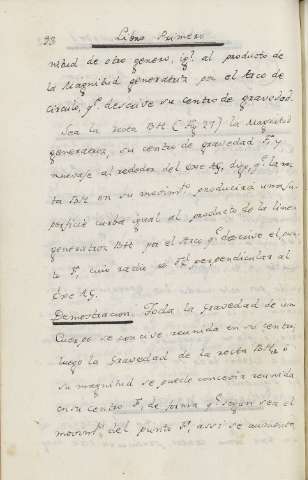 98 Libro Primero
nitud de otro genero, igl. al producto de
la Magnitud generatriz por el Arco de
circulo, qe. descrive su centro de gravedad.
Sea la recta BH (Fig. 27) la Magnitud
generatriz, su centro de gravedad F, y
muevase al rededor del exe AG, digo qe. la rec-
ta BH en su movimto. producirá una su-
perficie curba igual al producto de la linea
generatriz BH por el Arco qe. descrive el pun-
to F, cuio radio es perpendicular al
Exe AG.
Demostracion. Toda la gravedad de un
Cuerpo se concive reunida en su centro,
luego la gravedad de la recta BH, o
su magnitud se puede concevir reunida
en su centro F, de forma qe. segun sea el
movimto. del punto F, assi se aumenta